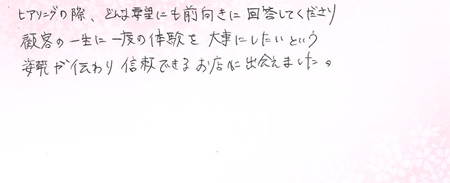 ヒアリングの際、どんな要望にも前向きに回答してくださり
顧客の一生に一度の体験を大事にしたいという
姿勢が伝わり信頼できるお店に出会えました。